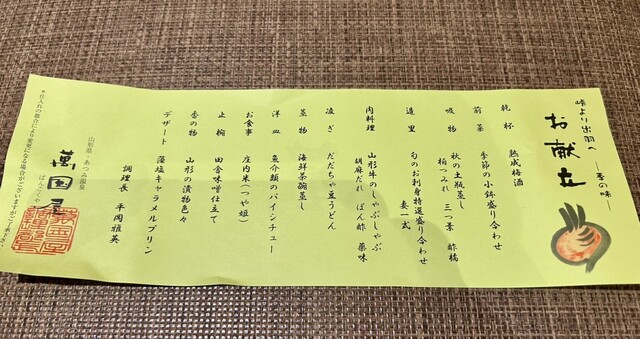 峠より出羽へ
―季の味―
お献立
乾杯 熟成梅酒
前菜 季節の小鉢盛り合わせ
吸物 秋の土瓶蒸し
柏つみれ 三つ葉 酢橘
造里 旬のお刺身特選盛り合わせ
妻一式
肉料理 山形牛のしゃぶしゃぶ
胡麻だれ ぽん酢 薬味
凌ぎ だだちゃ豆うどん
蒸物 海鮮茶碗蒸し
洋皿 魚介類のパイシチュー
お食事 庄内米(つや姫)
止椀 田舎味噌仕立て
香の物 山形の漬物色々
デザート 藻塩キャラメルプリン
調理長 平岡雅英
山形県・あつみ温泉
萬国屋
ばんこくや
*仕入れの都合により変更になる場合がございますがご了承下さい。